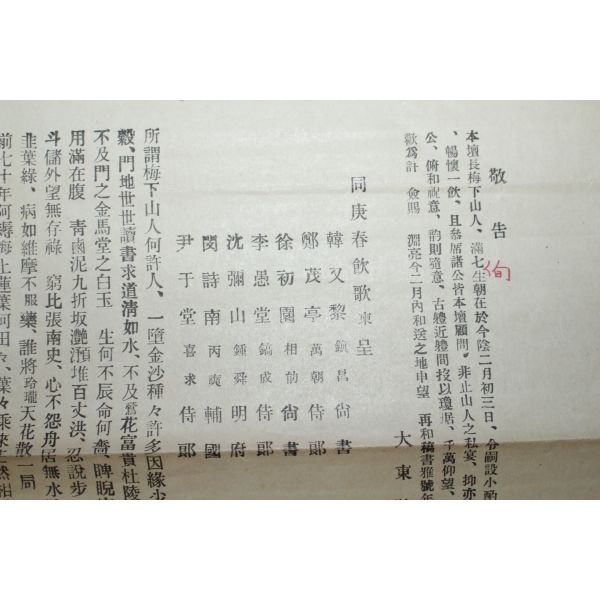 敬告
本壇長梅下山人、滿七生朝在於今陰二月初三日、令嗣設小酌
旬
、暢懷一飮、且參席諸公皆本壇顧問、非止山人之私宴、抑亦
公、俯和祝意、韵則隨意、古體近體間投以瓊琚、千萬仰望、
歡爲計 僉賜 淵亮今二月內和送之地申望 再和稿書雅號年
大東
同庚春飮歌柬呈
韓又黎 鎭昌 尙書
鄭茂亭 萬朝 侍郎
徐初園 相勛 尙書
李愚堂 鎬成 侍郎
沈彌山 鍾舜 明府
閔詩南 丙奭 輔國
尹于堂 喜求 侍郎
所謂梅下山人何許人、一墮金沙種々許多因緣少
穀、門地世世讀書求道淸如水、不及鶯花富貴杜陵
不及門之金馬堂之白玉 生何不辰命何奇、睥睨
用滿在腹 靑鹵泥九折坂灎澦堆百丈洪、忍說步
斗儲外望無存祿 窮比張南史、心不怨舟居無水
韭葉綠、病如維摩不服藥、誰將玲瓏天花散一局
前七十年阿 梅上蓮葉何田々、葉々乘來